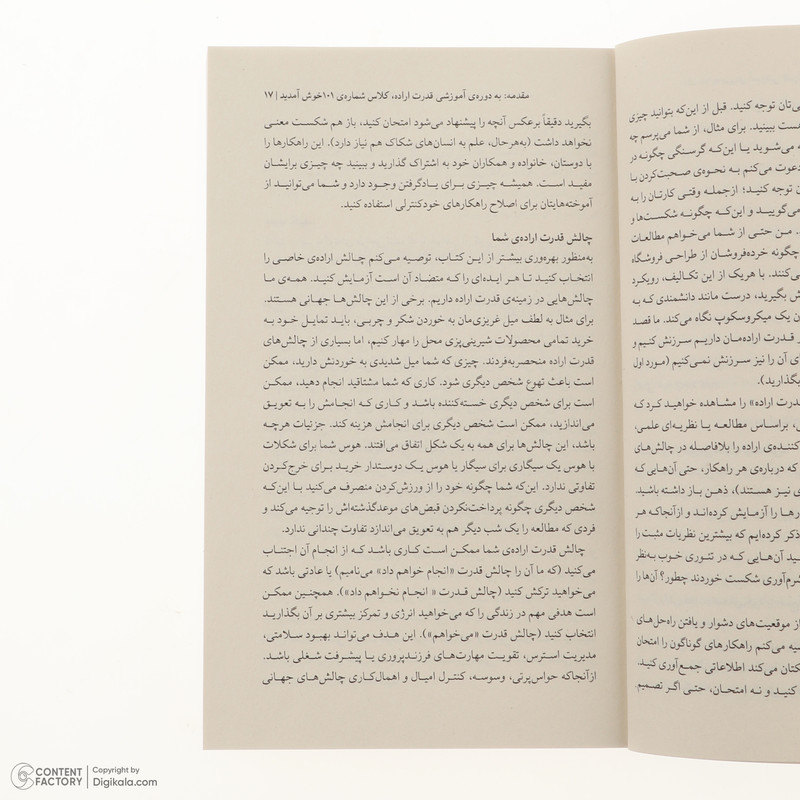 ی‌تان توجه کنید. قبل از این‌که بتوانید چیزی
ست ببینید. برای مثال، از شما می‌پرسم چه
ه می‌شوید یا این‌که گرسنگی چگونه در
دعوت می‌کنم به نحوه‌ی صحبت‌کردن با
ن توجه کنید؛ ازجمله وقتی کارتان را به
ی‌گویید و این‌که چگونه شکست‌ها و
. من حتی از شما می‌خواهم مطالعات
چگونه خرده‌فروشان از طراحی فروشگاه
ی‌کنند. با هریک از این تکالیف، رویکرد
ش بگیرید، درست مانند دانشمندی که به
ن یک میکروسکوپ نگاه می‌کند. ما قصد
ر قدرت اراده‌مان داریم سرزنش کنیم و
ی آن را نیز سرزنش نمی‌کنیم (مورد اول
گذارید).
درت اراده» را مشاهده خواهید کرد که
ی، براساس مطالعه یا نظریه‌ای علمی،
کننده‌ی اراده را بلافاصله در چالش‌های
که درباره‌ی هر راهکار، حتی آن‌هایی که
ی نیز هستند)، ذهن باز داشته باشید.
رها را آزمایش کرده‌اند و ازآنجاکه هر
ذکر کرده‌ایم که بیشترین نظریات مثبت را
ید آن‌هایی که در تئوری خوب به‌نظر
شرم‌آوری شکست خوردند چطور؟ آن‌ها را
از موقعیت‌های دشوار و یافتن راه‌حل‌های
صیه می‌کنم راهکارهای گوناگون را امتحان
کتان می‌کند اطلاعاتی جمع‌آوری کنید.
کنید و نه امتحان، حتی اگر تصمیم
مقدمه: به دوره‌ی آموزشی قدرت اراده، کلاس شماره‌ی ۱۰۱خوش آمدید | ۱۷
بگیرید دقیقاً برعکس آنچه را پیشنهاد می‌شود امتحان کنید، باز هم شکست معنی
نخواهد داشت (به‌هرحال، علم به انسان‌های شکاک هم نیاز دارد). این راهکارها را
با دوستان، خانواده و همکاران خود به اشتراک گذارید و ببینید چه چیزی برایشان
مفید است. همیشه چیزی برای یادگرفتن وجود دارد و شما می‌توانید از
آموخته‌هایتان برای اصلاح راهکارهای خودکنترلی استفاده کنید.
چالش قدرت اراده‌ی شما
به‌منظور بهره‌وری بیشتر از این کتاب، توصیه می‌کنم چالش اراده‌ی خاصی را
انتخاب کنید تا هر ایده‌ای را که متضاد آن است آزمایش کنید. همه‌ی ما
چالش‌هایی در زمینه‌ی قدرت اراده داریم. برخی از این چالش‌ها جهانی هستند.
برای مثال به لطف میل غریزی‌مان به خوردن شکر و چربی، باید تمایل خود به
خرید تمامی محصولات شیرینی‌پزی محل را مهار کنیم، اما بسیاری از چالش‌های
قدرت اراده منحصربه‌فردند. چیزی که شما میل شدیدی به خوردنش دارید، ممکن
است باعث تهوع شخص دیگری شود. کاری که شما مشتاقید انجام دهید، ممکن
است برای شخص دیگری خسته‌کننده باشد و کاری که انجامش را به تعویق
می‌اندازید، ممکن است شخص دیگری برای انجامش هزینه کند. جزئیات هرچه
باشد، این چالش‌ها برای همه به یک شکل اتفاق می‌افتند. هوس شما برای شکلات
با هوس یک سیگاری برای سیگار یا هوس یک دوستدار خرید برای خرج‌کردن
تفاوتی ندارد. این‌که شما چگونه خود را از ورزش‌کردن منصرف می‌کنید با این‌که
شخص دیگری چگونه پرداخت‌نکردن قبض‌های موعدگذشته‌اش را توجیه می‌کند و
فردی که مطالعه را یک شب دیگر هم به تعویق می‌اندازد تفاوت چندانی ندارد.
چالش قدرت اراده‌ی شما ممکن است کاری باشد که از انجام آن اجتناب
می‌کنید (که ما آن را چالش قدرت «انجام خواهم داد» می‌نامیم) یا عادتی باشد که
می‌خواهید ترکش کنید (چالش قدرت « انجام نخواهم داد»). همچنین ممکن
است هدفی مهم در زندگی را که می‌خواهید انرژی و تمرکز بیشتری بر آن بگذارید
انتخاب کنید (چالش قدرت «می‌خواهم»). این هدف می‌تواند بهبود سلامتی،
مدیریت استرس، تقویت مهارت‌های فرزندپروری یا پیشرفت شغلی باشد.
ازآنجاکه حواس‌پرتی، وسوسه، کنترل امیال و اهمال‌کاری چالش‌های جهانی
CONTENT FACTORY
Copyright by
Digikala.com